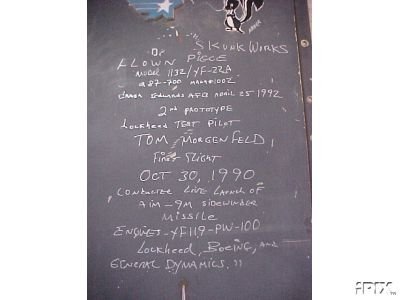 SKUNK WORKS
FLOWN PIECE
MODEL 1132/YF-22A
CRASH EDWARDS AFB APRIL 25 1992
2nd PROTOTYPE
LOCKHEED TEST PILOT
TOM MORGENFELD
FIRST FLIGHT
OCT 30, 1990
CONDUCTED LIVE LAUNCH OF
AIM-9M SIDEWINDER
MISSILE
ENGINES-YF119-PW-100
LOCKHEED, BOEING, AND
GENERAL DYNAMICS.
iPIX